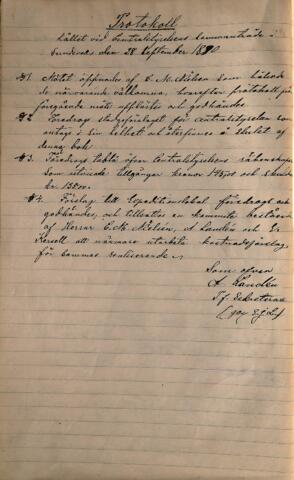 Protokoll
hållet vid Centralstyrelsens sammanträde i
Sundsvall den 28 September 1890
§1 Mötet öppnades af C. M. Nilsen som hälsade
de närvarande välkomna, hvarefter protokoll från
föregående möte upplästes och godkändes
§2 Föredrogs stadgeförslaget för centralstyrelsen som
antogs i sin helhet och återfinnes å slutet af
denna bok
§3. Föredrogs tablå öfver Centralstyrelsens räkenskaper
som utvisade tillgångar kronor och skulder
kr
§4. Förslag till Expeditionslokal föredrogs och
godkändes, och tillsattes en kommitté bestående
af Herrar C. M. Nilsen, A Landén och
att närmare utarbeta kostnadsförslag
för sammas realiserande
Som ofvan
A. Landén
T.f. Sekreterare